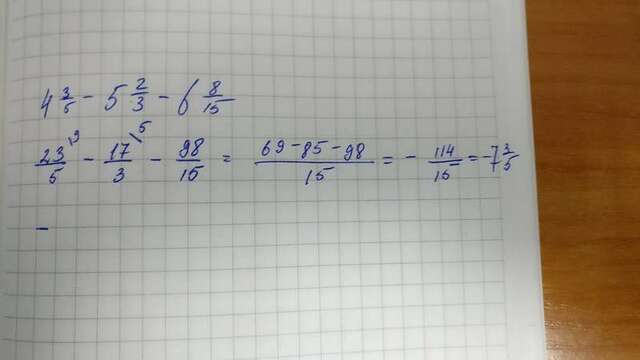 4 3/5 - 5 2/3 - 6 8/15
23/5 \3 - 17/3 \5 - 98/15 = (69-85-98)/15 = - 114/15 = -7 3/5
-